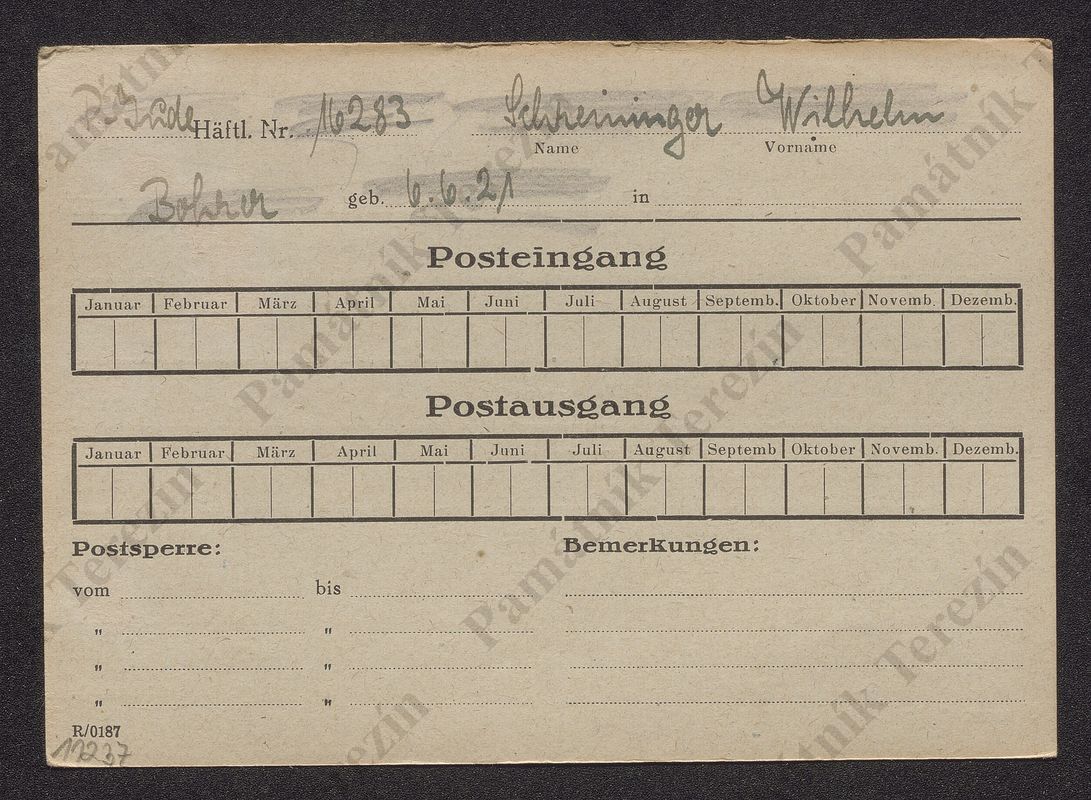 Jude Häftl. Nr. 16283 Schreininger Wilhelm
Name Vorname
Bohrer geb. 6.6.21 in
Posteingang
Januar Februar März April Mai Juni Juli August Septemb. Oktober Novemb. Dezemb.
Postausgang
Januar Februar März April Mai Juni Juli August Septemb Oktober Novemb. Dezemb.
Postsperre: Bemerkungen:
vom bis
" "
" "
" "
R/0187
11237
Památník Terezín
Památník Terezín
Památník Terezín
Památník Terezín